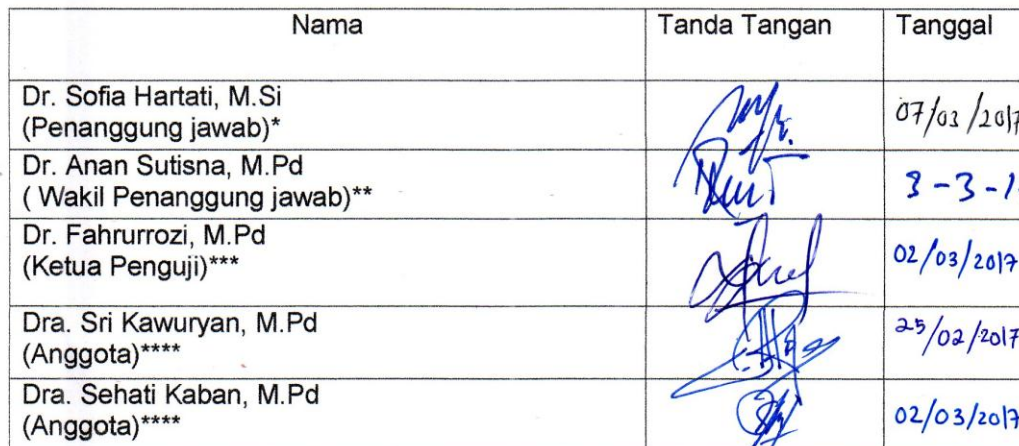 Nama Tanda Tangan Tanggal
Dr. Sofia Hartati, M.Si
(Penanggung jawab)* 07/03/2017
Dr. Anan Sutisna, M.Pd
( Wakil Penanggung jawab)** 3-3-1
Dr. Fahrurrozi, M.Pd
(Ketua Penguji)*** 02/03/2017
Dra. Sri Kawuryan, M.Pd
(Anggota)**** 25/02/2017
Dra. Sehati Kaban, M.Pd
(Anggota)**** 02/03/2017